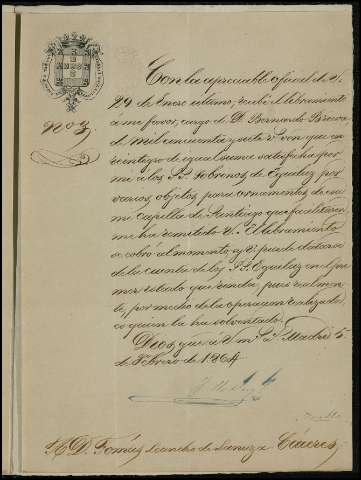 No 3,
Con la apreciable oficial de V.
29 de Enero ultimo, recibí el libramiento
á mi favor, cargo de D. Bernardo
de mil cincuenta y siete r. von que en
reintegro de igual suma satisfecha por
mi á los SS. Sobrinos de Eguiluz por
varios objetos para ornamentos de esa
Capilla de Santiago que facilitaron
me ha remitido V. El libramiento
se cobró al momento y V. puede datarse
de la cuenta de los SS. Eguiluz en el pri
mer estado que rinda, pues realmen
te, por medio de la operacion realizada,
es quien la ha solventado.
Dios gue á V. m. a. Madrid 5
de Febrero de 1864
Sr. D. Tomás Sancho de Lanuza Cáceres.